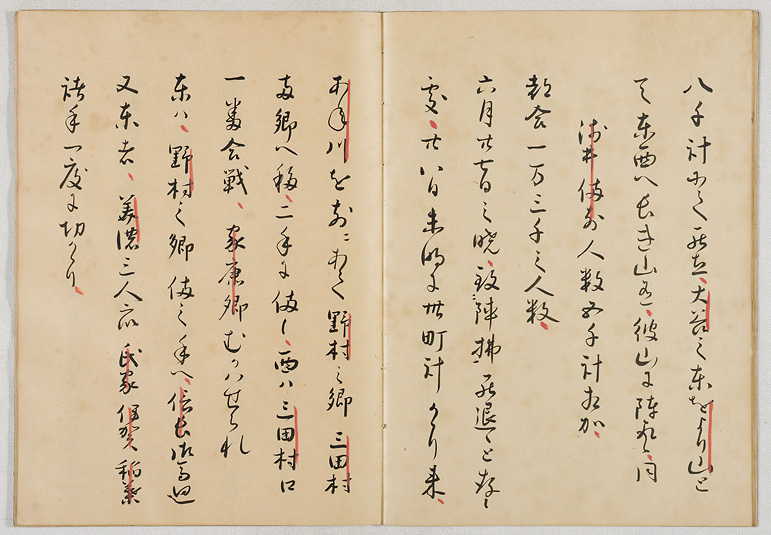 八千計にて罷立、大谷之東をより山と
て東西へ長き山有、彼山に陣取、同
浅井備前人数五千計相加、
都合一万三千之人数、
六月廿七日之暁、致陣拂罷退と存候
処、廿八日未明に卅町計かゝり来、
あね川を前ニあて野村之郷三田村
両郷へ移、二手に備候、西ハ三田村口
一番会戦、家康卿むかハせられ
東ハ、野村之郷備之手へ、信長御馬廻
又東者、美濃三人衆氏家伊賀稲葉
諸手一度に切かゝり、